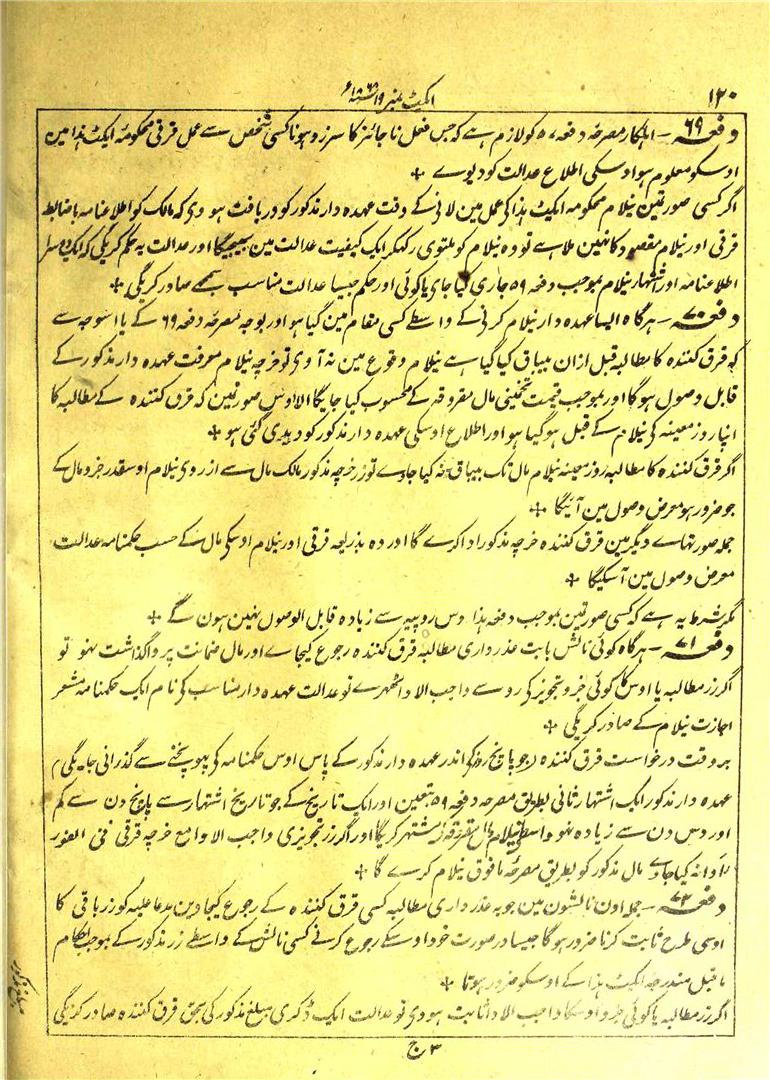 ۱۲۰
ایکٹ نمبر ۱۹ سنہ ۱۸۶۸ء
دفعہ ۶۹ ۔ اہلکار مصرحہ دفعہ ۵۷ کو لازم ہے کہ جس فعل ناجائز کا سرزد ہونا کسی شخص سے عمل قرقی محکومہ ایکٹ ہذا مین
اوسکو معلوم ہو اوسکی اطلاع عدالت کو دیوے +
اگر کسی صورتمین نیلام محکومہ ایکٹ ہذا کی عمل مین لانی کے وقت عہدہ دار مذکور کو دریافت ہووی کہ مالک کو اطلاعنامہ باضابطہ
قرقی اور نیلام مقصود کا نہین ملا ہے تو وہ نیلام کو ملتوی رکھکر ایک کیفیت عدالت مین بھیجیگا اور عدالت یہ حکم کریگی کہ ایک دوسرا
اطلاعنامہ اور اشتہار نیلام بموجب دفعہ ۵۹ جاری کیا جای یا کوئی اور حکم جیسا عدالت مناسب سمجھے صادر کریگی +
دفعہ ۷۰ ۔ ہرگاہ ایسا عہدہ دار نیلام کرنی کے واسطے کسی مقام مین گیا ہو اور بوجہ مصرحہ دفعہ ۶۹ کے یا اسوجہ سے
کہ قرق کنندہ کا مطالبہ قبل ازان بیباق کیا گیا ہے نیلام وقوع مین نہ آوی تو خرچہ نیلام معرفت عہدہ دار مذکور کے
قابل وصول ہوگا اور بموجب قیمت تخمینی مال مقروقہ کے محسوب کیا جایگا الا اوس صورتمین کہ قرق کنندہ کے مطالبہ کا
ایتا روز معینہ کی نیلام کے قبل ہو گیا ہو اور اطلاع اوسکی عہدہ دار مذکور کو دیدی گئی ہو +
اگر قرق کنندہ کا مطالبہ روز معینہ نیلام مال تک بیباق نہ کیا جاوے تو زر خرچہ مذکور مالک مال سے از روی نیلام اوسقدر جزو مال کے
جو ضرور ہو معرض وصول مین آئیگا +
جملہ صورتہاے دیگر مین قرق کنندہ خرچہ مذکور ادا کرے گا اور وہ بذریعہ قرقی اور نیلام اوسکی مال کے حسب حکمنامہ عدالت
معرض وصول مین آسکیگا +
مگر شرط یہ ہے کہ کسی صورتمین بموجب دفعہ ہذا دس روپیہ سے زیادہ قابل الوصول نہین ہون گے +
دفعہ ۷۱ ۔ ہرگاہ کوئی نالش بابت عذر داری مطالبہ قرق کنندہ رجوع کیجاے اور مال ضمانت پر واگذاشت نہو تو
اگر زر مطالبہ یا اوسکا کوئی جزو تجویز کی رو سے واجب الادا ٹھہرے تو عدالت عہدہ دار مناسب کی نام ایک حکمنامہ مشعر
اجازت نیلام کے صادر کریگی +
بر وقت درخواست قرق کنندہ جو پانچ روز کے اندر عہدہ دار مذکور کے پاس اوس حکمنامہ کی پہونچنے سے گذرانی جایگی
عہدہ دار مذکور ایک اشتہار ثانی بطریق مصرحہ دفعہ ۵۹ بتعین اور ایک تاریخ کے جو تاریخ اشتہار سے پانچ دن سے کم
اور دس دن سے زیادہ نہو واسطے نیلام مال مقروقہ کے مشتہر کریگا اور اگر زر تجویزی واجب الادا مع خرچہ قرقی فی الفور
ادا نہ کیا جاوے مال مذکور کو بطریق مصرحہ مافوق نیلام کرے گا +
دفعہ ۷۲ ۔ جملہ اون نالشون مین جو بہ عذرداری مطالبہ کسی قرق کنندہ کے رجوع کیجاوین مدعا علیہ کو زر باقی کا
اوسی طرح ثابت کرنا ضرور ہوگا جیسا در صورت خود اوسکے رجوع کرنے کسی نالش کے واسطے زر مذکور کے بموجب احکام
ماقبل مندرجہ ایکٹ ہذا کے اوسکو ضرور ہوتا +
اگر زر مطالبہ یا کوئی جزو اوسکا واجب الادا ثابت ہووی تو عدالت ایک ڈکری مبلغ مذکور کی بحق قرق کنندہ صادر کریگی
۳ ج